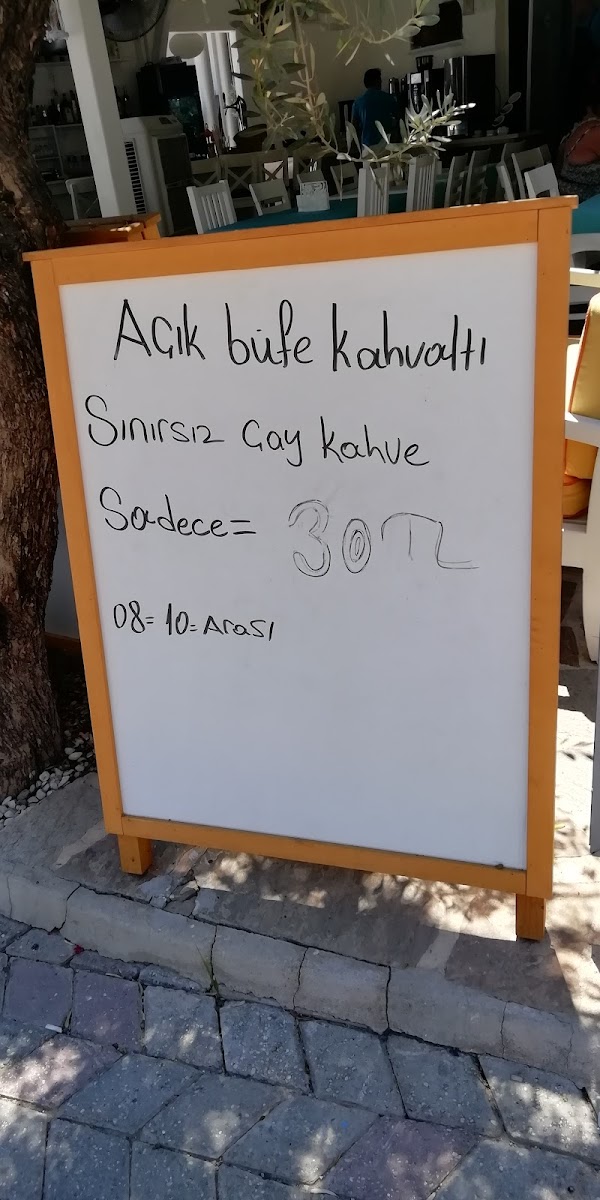 Açık büfe kahvaltı
Sınırsız Çay kahve
Sadece= 30TL
08=10=Arası